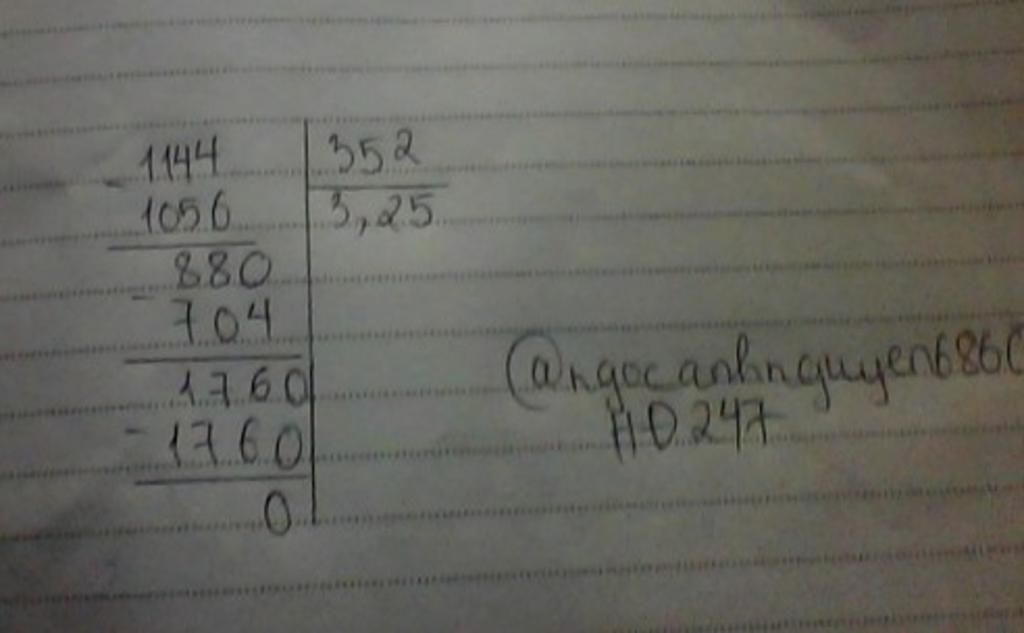 1144 352
- 1056 3,25
880
- 704
1760
- 1760
0
@ngocanhnguyen686
HD247